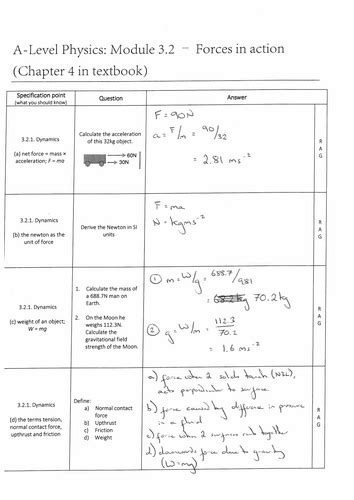 A-Level Physics: Module 3.2 – Forces in action
(Chapter 4 in textbook)
Specification point
(what you should know)
Question
Answer
3.2.1. Dynamics
(a) net force = mass ×
acceleration; F = ma
Calculate the acceleration
of this 32kg object.
60N
30N
F = 90N
a = F/m = 90/32
= 2.81 ms⁻²
R
A
G
3.2.1. Dynamics
(b) the newton as the
unit of force
Derive the Newton in SI
units
F = ma
N = kgms⁻²
R
A
G
3.2.1. Dynamics
(c) weight of an object;
W = mg
1. Calculate the mass of
a 688.7N man on
Earth.
2. On the Moon he
weighs 112.3N.
Calculate the
gravitational field
strength of the Moon.
① m = W/g = 688.7/9.81
= 70.2kg
② g = W/m = 112.3/70.2
= 1.6 ms⁻²
R
A
G
3.2.1. Dynamics
(d) the terms tension,
normal contact force,
upthrust and friction
Define:
a) Normal contact
force
b) Upthrust
c) Friction
d) Weight
a) force when 2 solids touch (N3L),
acts perpendicular to surface
b) force caused by difference in pressure
in a fluid
c) force when 2 surfaces rub together
d) downwards force due to gravity
(W=mg)
R
A
G